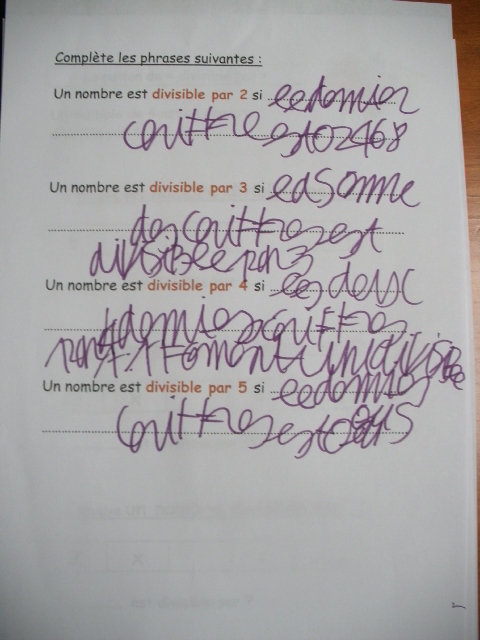 Complète les phrases suivantes :
Un nombre est divisible par 2 si ee domier
coittre est 02468
Un nombre est divisible par 3 si ea somme
des coittres est
divisibee par 3
Un nombre est divisible par 4 si ees deux
domiers coittres
Un nombre est divisible par 5 si ee domier
coittres est 0 5